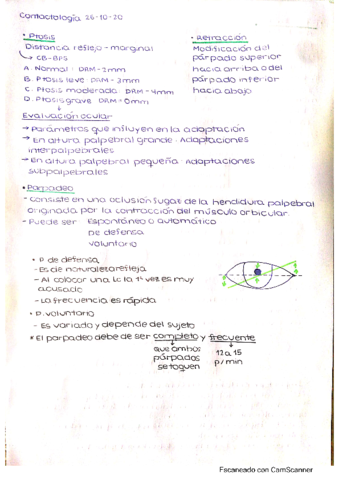 Contactología 26-10-20
• Ptosis
Distancia reflejo-marginal
↳ CB-BPS
A. Normal: DRM-2mm
B. Ptosis leve DRM-3mm
C. Ptosis moderada DRM-4mm
D. Ptosis grave DRM=0mm
• Retracción
Modificación del
párpado superior
hacia arriba o del
párpado inferior
hacia abajo
Evaluación ocular
→ Parámetros que influyen en la adaptación
→ En altura palpebral grande: Adaptaciones
interpalpebrales
→ En altura palpebral pequeña: Adaptaciones
subpalpebrales
• Parpadeo
- Consiste en una oclusión fugaz de la hendidura palpebral
originada por la contracción del músculo orbicular.
- Puede ser Espontáneo o automático
De defensa
Voluntario
• P. de defensa
- Es de naturaleza refleja
- Al colocar una lc la 1ª vez es muy
acusado
- La frecuencia es rápida
• P. voluntario
- Es variado y depende del sujeto
* El parpadeo debe de ser completo y frecuente
que ambos
párpados
se toquen
12 a 15
p/min
Escaneado con CamScanner